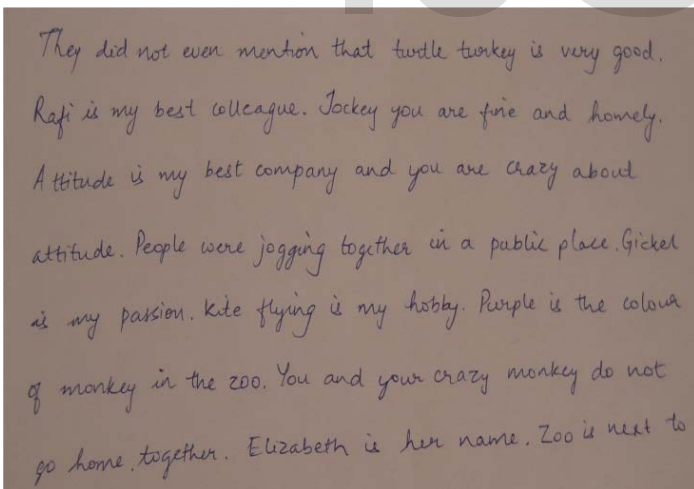 They did not even mention that turtle turkey is very good.
Rafi is my best colleague. Jockey you are fine and homely.
Attitude is my best company and you are crazy about
attitude. People were jogging together in a public place. Gickel
is my passion. Kite flying is my hobby. Purple is the colour
of monkey in the zoo. You and your crazy monkey do not
go home. together. Elizabeth is her name. Zoo is next to